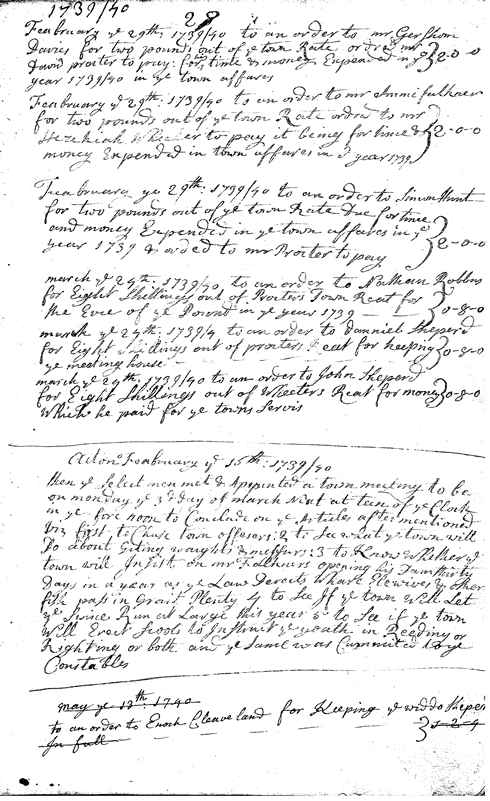 1739/40
28
Feabruary ye 29th: 1739/40 to an order to mr Gershom
Davies for two pounds out of ye town Rate ordred mr
David procter to pay: for time & money Expended in ye } 2-0-0
year 1739/40 in ye town affares
Feabruary ye 29th: 1739/40 to an order to mr Ammi fulkner
for two pounds out of ye town Rate ordred to mr
Hezekiah Wheeler to pay it being for time & } 2-0-0
money Expended in town affares in ye year 1739
Feabruary ye 29th: 1739/40 to an order to Simon Hunt
for two pounds out of ye town Rate Due for time
and money Expended in ye town affares in ye } 2-0-0
year 1739 & ordred to mr Procter to pay
march ye 24th: 1739/40, to an order to Nathan Robbins
for Eight Shillings out of Procters Town Reat for } 0-8-0
the Euce of ye Pound in ye years 1739
march ye 24th: 1739/4 to an order to danniel Sheperd
for Eight Shillings out of procters Reat for keeping } 0-8-0
ye meeting house
march ye 24th, 1739/40 to an order to John Sheperd
for Eight Shillings out of Wheelers Reat for money } 0-8-0
Which he paid for ye towns Servis
Acton: Feabruary ye 15th: 1739/40
then ye Select men met & Appointed a town meeting to be
on monday ye 3d day of march Next at teen of ye Clock
in ye fore noon to Conclude on ye Articles after mentioned
Viz first, to Chuse town offesers: 2 to See what ye town will
Do about Giting waights & messurs: 3 to Know Whether ye
town will Insist on mr Falkners opening his Dam thirty
Days in a year as ye Law Derects Whare Elewives & other
fish pass in Grait Plenty 4 to See If ye town Will Let
ye Swine Run at Large this year 5 to See if ye town
Will Erect Scools to Instruct ye youth in Reeding or
Righting or both and ye Same was Cummited to ye
Constables
may ye 13th: 1740
to an order to Enoch Cleaveland for Keeping ye widdo Sheperd
In full